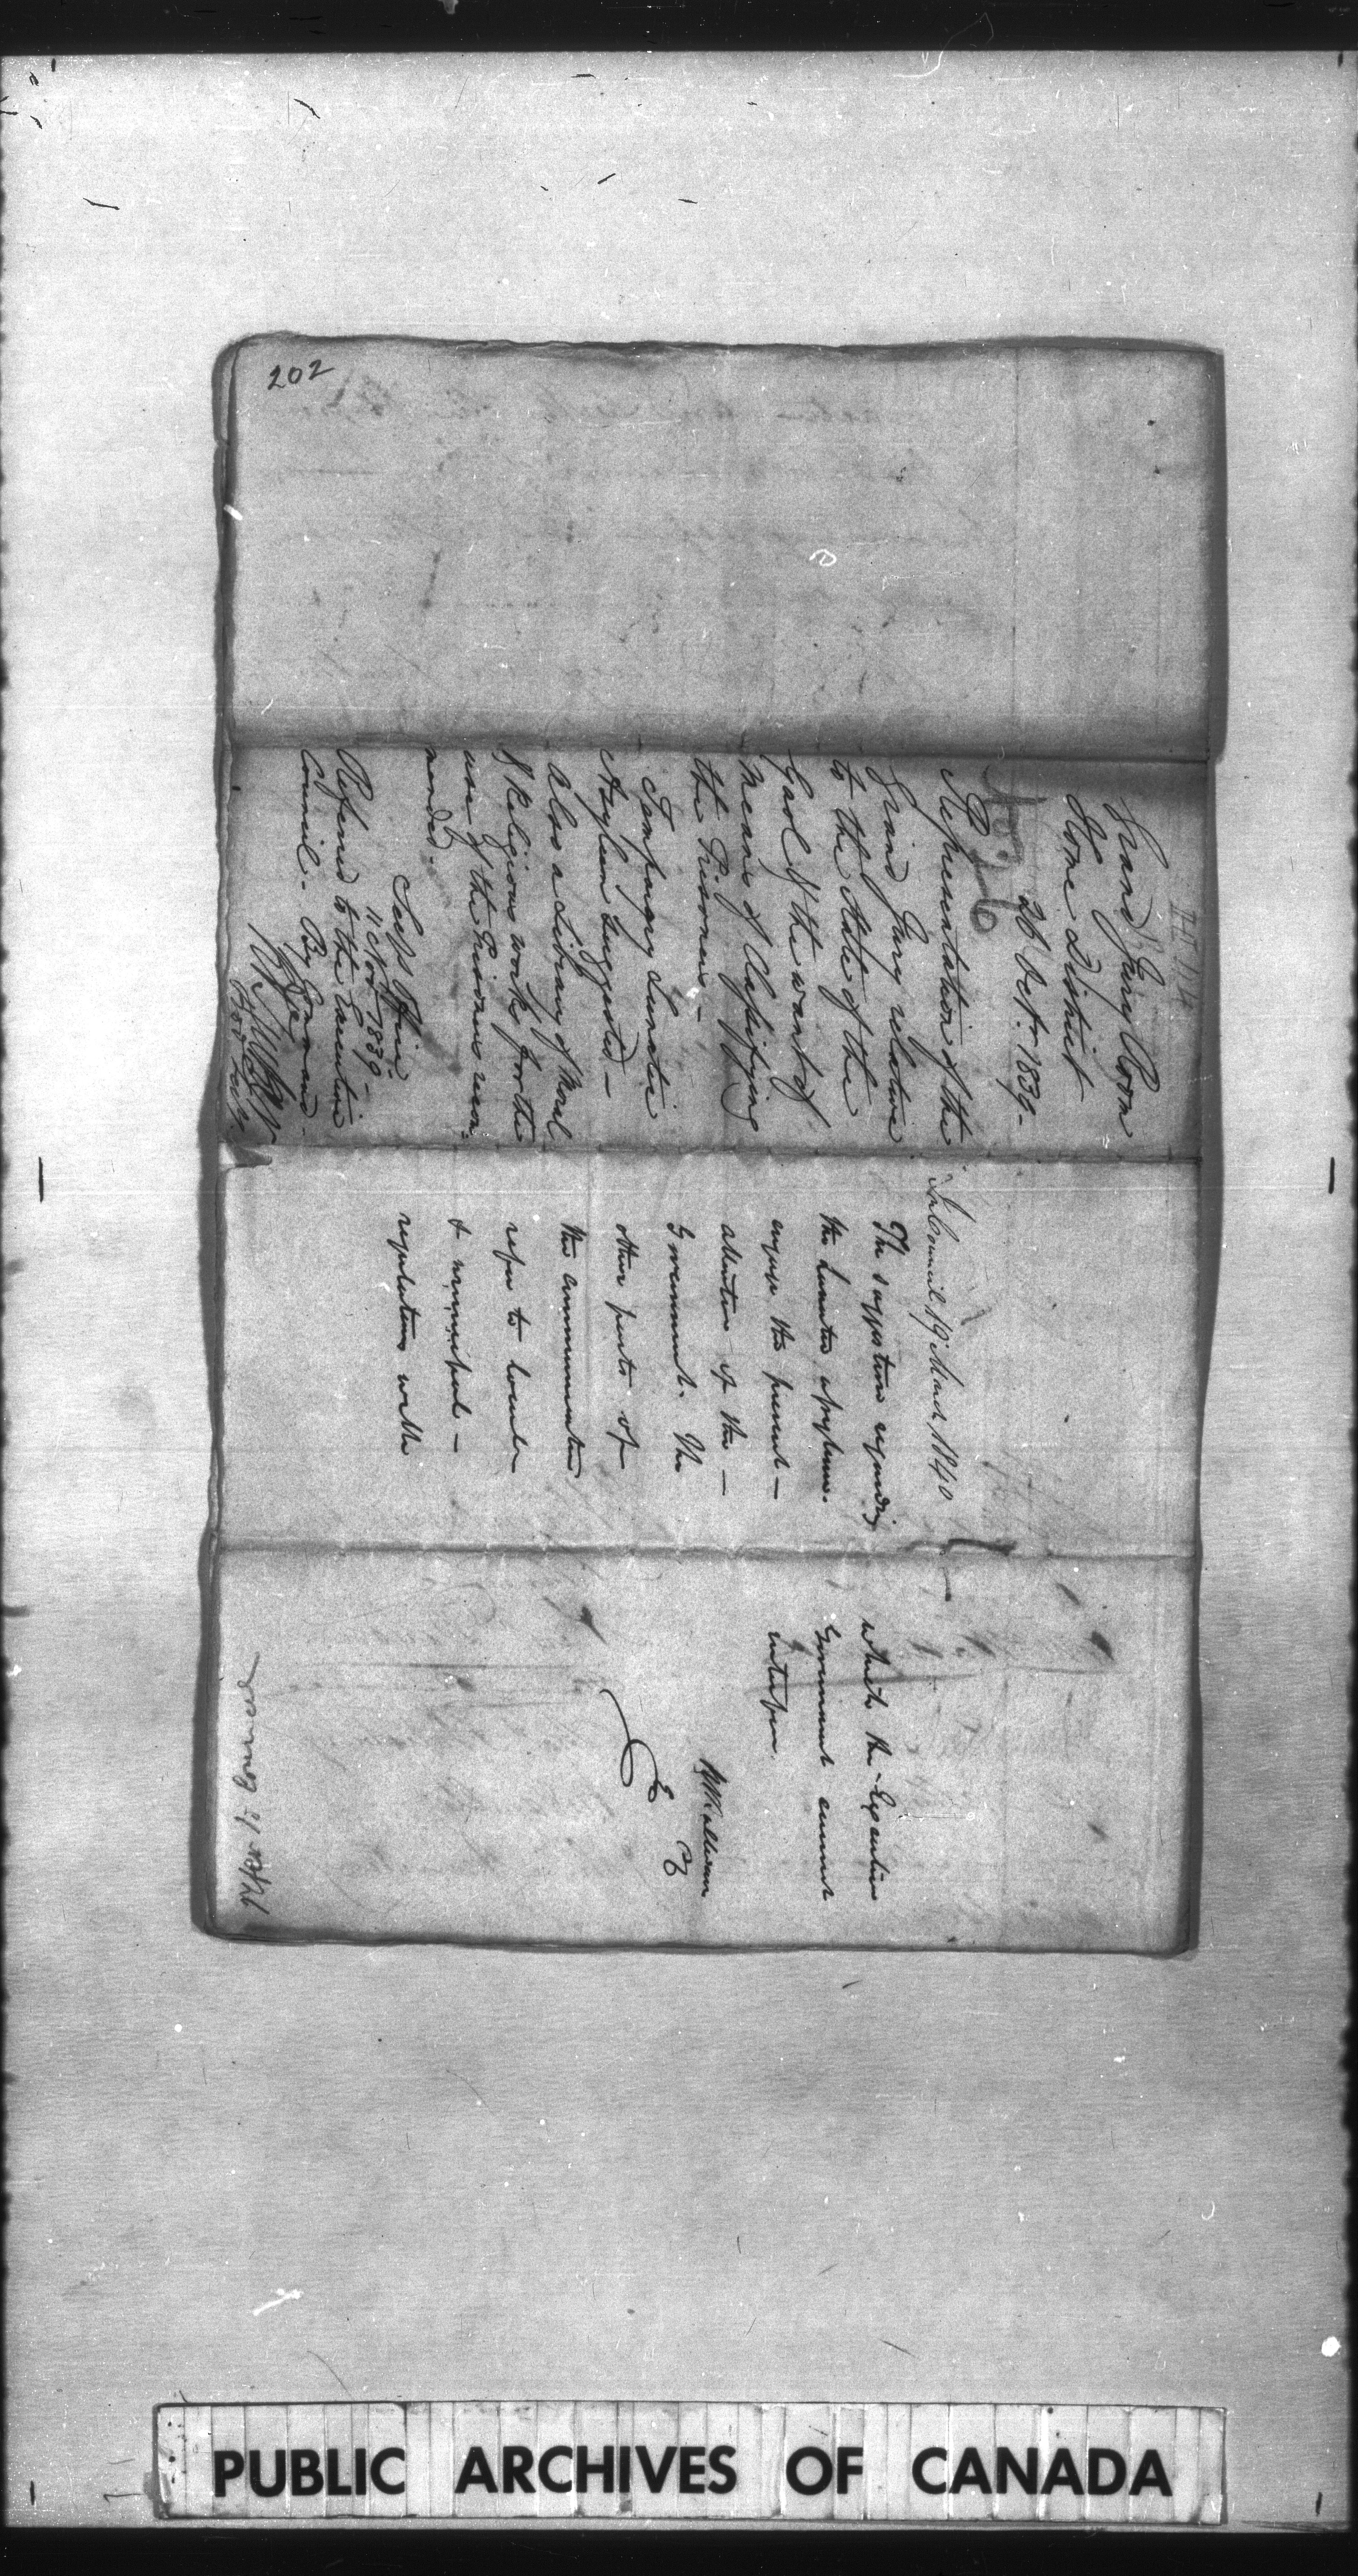 202
Grand Jury Room
Home District
26 Octr. 1839-
No. 26
Representation of the
Grand Jury relative
to the State of the
Gaol & the want of
means of Classifying
the Prisoners -
Temporary Lunatic
Asylum suggested -
Also a Library of Moral
& Religious works for the
use of the Prisoners recom:
mended.
11 Novr. 1839-
Referred to the Executive
Council - By Command -
In Council 19 March 1840
The suggestion regarding
the Lunatic asylum.
engage the present -
attention of the -
Government. The
other parts of
the communication
refer to local
& municipal -
regulations with
which the Executive
Government cannot
interfere.
RBSullivan
Refer to Council
PUBLIC ARCHIVES OF CANADA